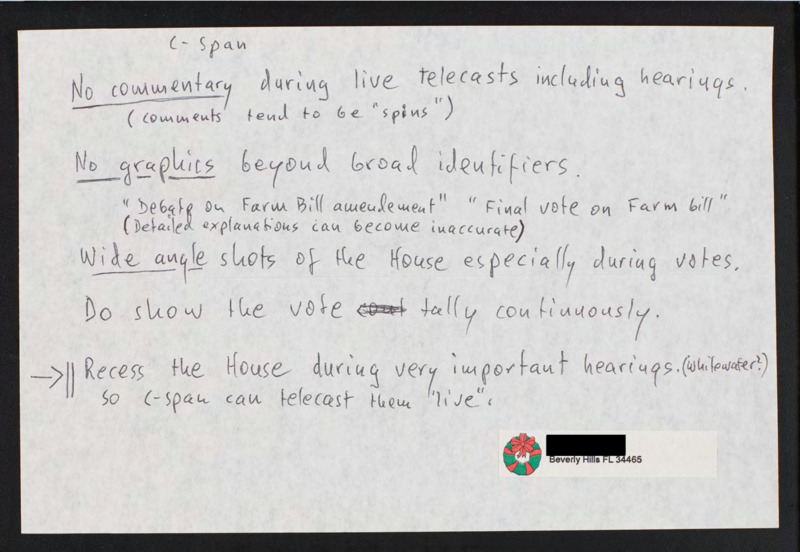 C-Span
No commentary during live telecasts including hearings.
(comments tend to be "spins")
No graphics beyond broad identifiers.
"Debate on Farm Bill amendement" "Final vote on Farm bill"
(Detailed explanations can become inaccurate)
Wide angle shots of the House especially during votes.
Do show the vote tally continuously.
→|| Recess the House during very important hearings. (Whitewater?)
so C-span can telecast them "live".
Beverly Hills FL 34465